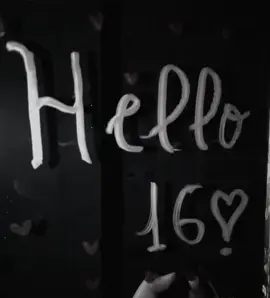 Hello
16!